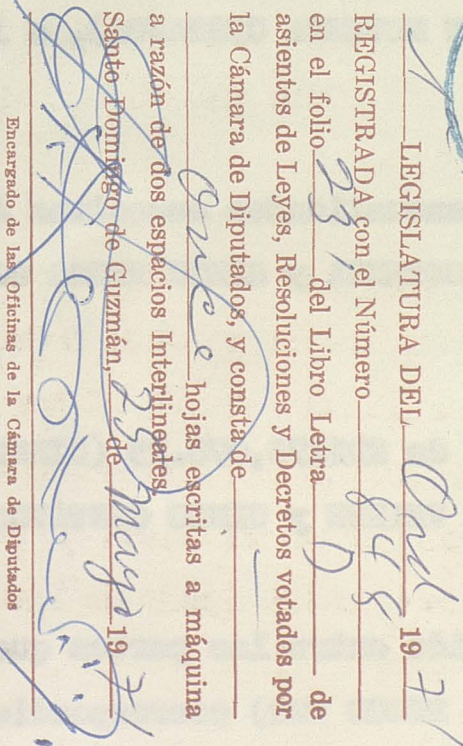 LEGISLATURA DEL Ord 197
REGISTRADA con el Número 848
en el folio 231 del Libro Letra D de
asientos de Leyes, Resoluciones y Decretos votados por
la Cámara de Diputados, y consta de
Once hojas escritas a máquina
a razón de dos espacios Interlineares.
Santo Domingo de Guzmán, 25 de Mayo 197
Encargado de las Oficinas de la Cámara de Diputados